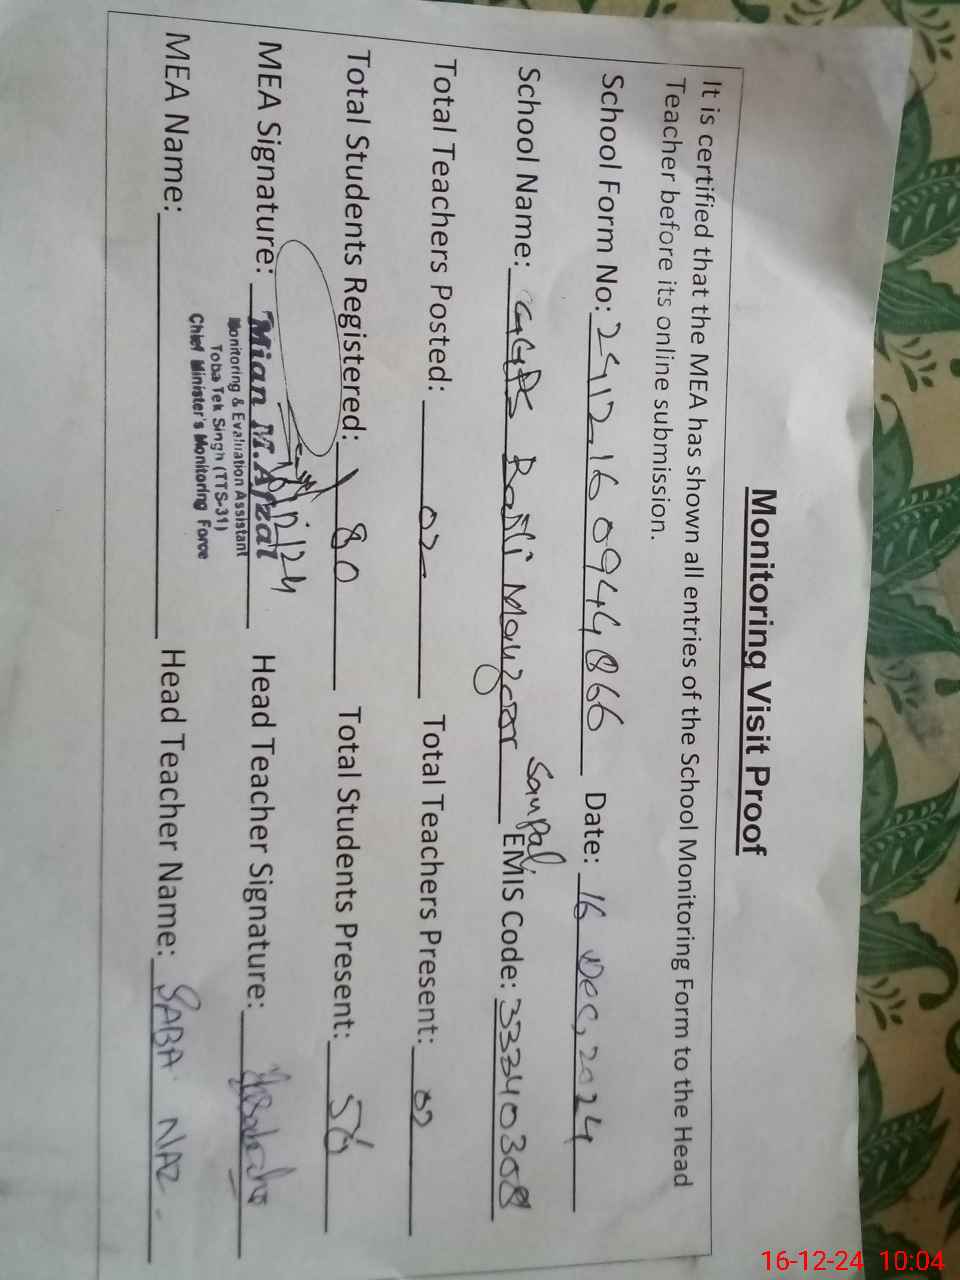 Monitoring Visit Proof
It is certified that the MEA has shown all entries of the School Monitoring Form to the Head
Teacher before its online submission.
School Form No: 2412160944866 Date: 16 Dec, 2024
School Name: GGPS Sanpal EMIS Code: 33340308
Total Teachers Posted: 02 Total Teachers Present: 02
Total Students Registered: 80 Total Students Present: 56
MEA Signature: Mian M.Afzal Head Teacher Signature:
Monitoring & Evaluation Assistant
Toba Tek Singh (TTS-31)
Chief Minister's Monitoring Force
MEA Name: Head Teacher Name: SABA NAZ
16-12-24 10:04